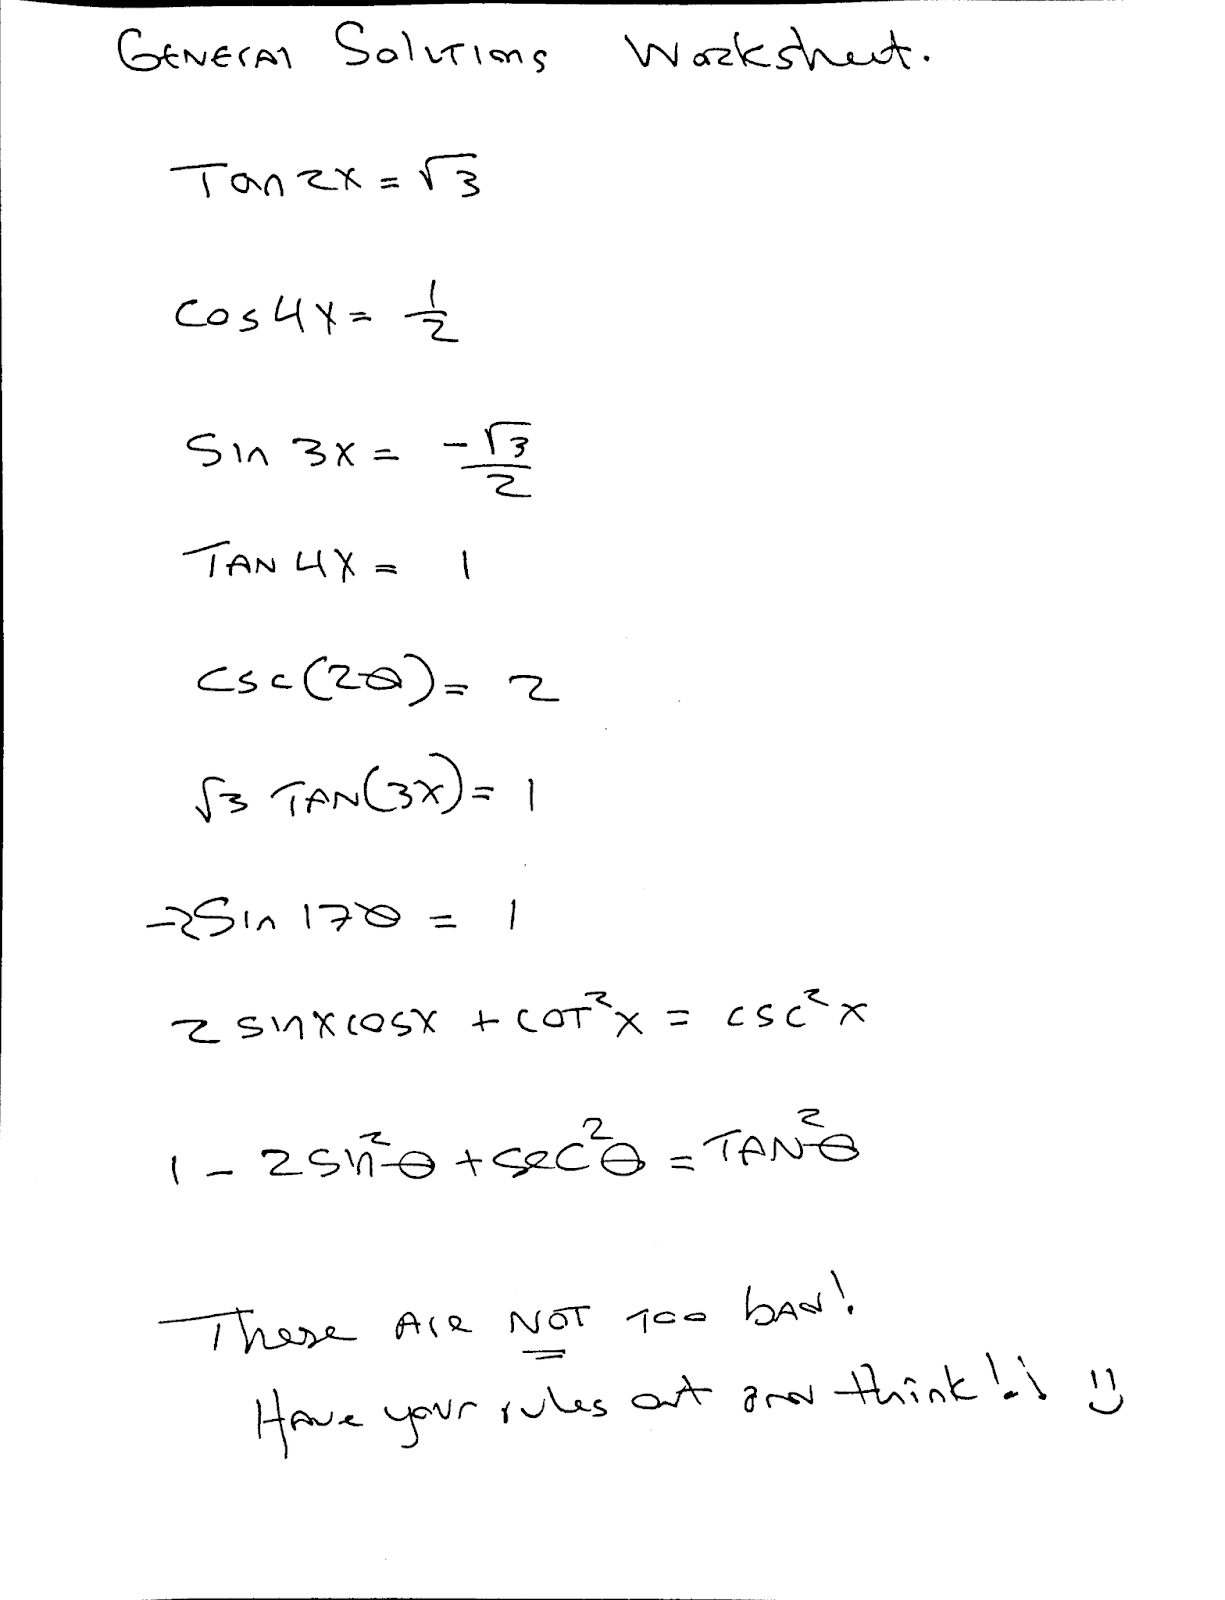 GENERAL SOLUTIONS Worksheet.
Tan 2x = √3
cos 4x = 1/2
Sin 3x = -√3/2
TAN 4x = 1
csc(2θ) = 2
√3 TAN(3x) = 1
-2 Sin 17θ = 1
2 sinx cosx + cot²x = csc²x
1 - 2 sin²θ + sec²θ = TAN²θ
These Are NOT Too bad!
Have your rules out and think!! :)